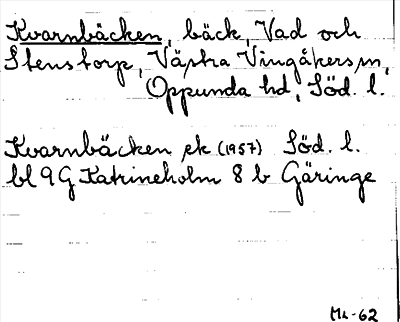 Kvarnbäcken, bäck, Vad och
Stenstorp, Västra Vingåkers sn,
Oppunda hd, Söd. l.
Kvarnbäcken ek (1957) Söd. l.
bl 9G Katrineholm 8 b Göringe
ML-62